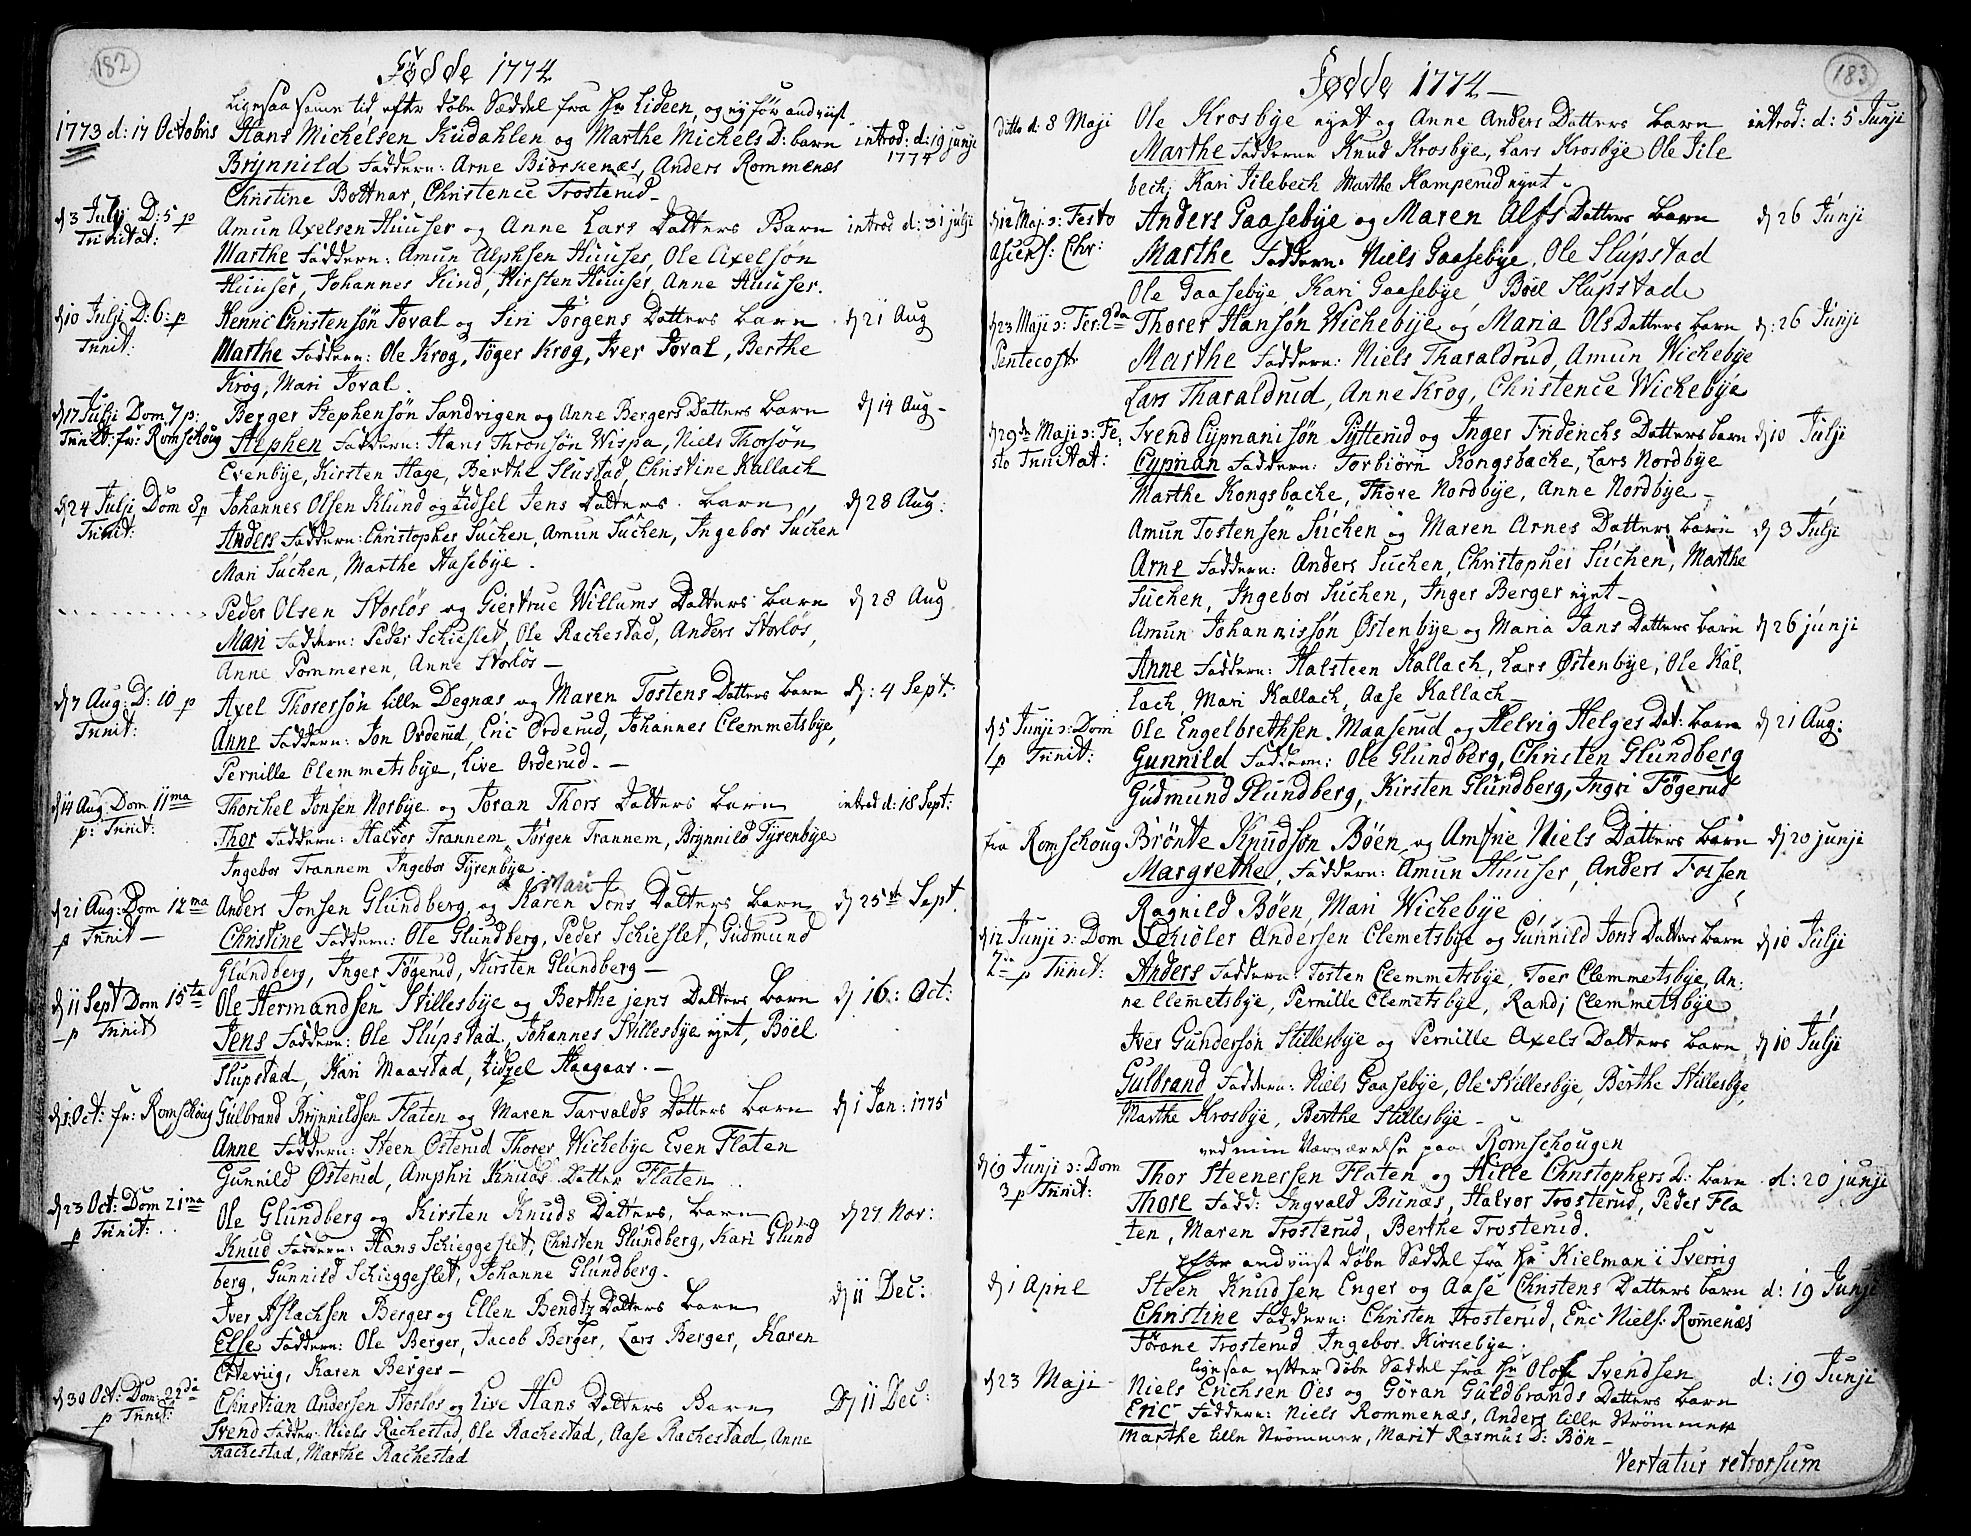 182
Fødde 1774
Ligesaa samme tid, efter døbe Sæddel fra Hr Lideen, og ny før andviist
1773 d: 17 Octobris Hans Michelsen Kudahlen og Marthe Michels D: barn introd: d: 19 junji 1774
Brynnild Faddern: Arne Biörkenæs, Anders Rommenæs
Christine Bottnar, Christence Trosterud
d 3 Julji D: 5 p Trinitat: Amun Axelsen Huuser og Anne Lars Datters Barn introd d: 31 julji
Marthe Faddern: Amun Alphsen Huuser, Ole Axelsøn
Huuser, Johannes Kind, Kirsten Huuser, Anne Huuser.
d 10 Julji D: 6: p Trinit: Henric Christensøn Joval og Siri Jørgens Datters barn d 21 Aug
Marthe Faddern: Ole Krog, Jøger Krog, Iver Joval, Berthe
Krog, Mari Joval.
d 17 Julji Dom 7 p: Trinit: fr: Romschoug Berger Stephensøn Sandvigen og Anne Bergers Datters barn d 14 Aug
Stephen Faddern: Hans Thronsøn Wispa, Niels Thorsøn
Evenbye, Kirsten Hage, Berthe Slustad, Christine Kallach
d 24 Julji Dom 8 p Trinit: Johannes Olsen Klund og Zidsel Jens Datters barn d 28 Aug:
Anders Faddern: Christopher Suchen, Amun Suchen, Ingebor Suchen
Mari Suchen, Marthe Hasebye.
Peder Olsen Storløs og Giertrue Willums Datters barn d 28 Aug.
Mari Faddern: Peder Schieslet, Ole Rachestad, Anders Storløs,
Anne Pommeren, Anne Storløs
d 7 Aug: D: 10 p Trinit: Axel Thoresøn lille Degnæs og Maren Tostens Datters barn d: 4 Sept:
Anne Faddern: Jon Orderud, Eric Orderud, Johannes Clemmetsbye,
Pernille Clemmetsbye, Live Orderud.
d 14 Aug Dom 11ma p: Trinit: Thorchel Jonsen Norbye og Joran Thors Datters barn introd d: 18 Sept:
Thor Faddern: Halvor Trannem, Jørgen Trannem, Brynnild Tyrenbye
Ingebor Trannem Ingebor Tyrenbye
Mari
d 21 Aug: Dom 12ma p Trinit Anders Jonsen Glundberg og Karen Jons Datters barn d 25te Sept.
Christine Faddern: Ole Glundberg, Peder Schieslet, Gudmund
Glundberg, Inger Føgerud, Kirsten Glundberg
d 11 Sept Dom 15ta p Trinit Ole Hermandsen Stillesbye og Berthe jens Datters barn d 16: Oct:
Jens Faddern: Ole Slupstad, Johannes Stillesbye eynt, Böel
Slupstad, Kari Maastad, Zidzel Haagaar.
d 1 Oct: fr: Romschoug Gulbrand Brynnildsen Flaten og Maren Tarvalds Datters barn d 1 Jan: 1775
Anne Faddern: Steen Osterud Thorer Wichebye Even Flaten
Gunnild Østerud, Amphri Knuds Datter Flaten
d 23 Oct: Dom 21ma p Trinit: Ole Glundberg og Kirsten Knuds Datters barn d 27 Nov:
Knud Faddern: Hans Schieggeslet, Christen Glundberg, Kari Glund
berg, Gunnild Schieggeslet, Johanne Glundberg.
Iver Aslachsen Berger og Ellen Bendtz Datters barn d 11 Dec:
Else Faddern: Ole Berger, Jacob Berger, Lars Berger, Karen
Ertevig, Karen Berger
d 30 Oct: Dom: 22da p Trinit: Christian Andersen Storløs og Live Hans Datters Barn D 11 Dec:
Svend Fadder: Niels Rachestad, Ole Rachestad, Aase Rachestad, Anne
Rachestad, Marthe Rachestad
183
Fødde 1774
ditto d: 8 Maji Ole Krosbye eynt og Anne Anders Datters barn introd: d: 5 Junji
Marthe Fadderne Knud Krosbye, Lars Krosbye Ole Jile
bech, Kari Jilebech Marthe Kamperud eynt
d 12 Maj: Festo Asiens: Chr: Anders Gaasebye og Maren Alfs Datters barn d 26 Junji
Marthe Faddern: Niels Gaasebye, Ole Slupstad
Ole Gaasebye, Kari Gaasebye, Böel Slupstad
d 23 Maji: Fer: 2da Pentecost: Thorer Hansøn Wichebye og Maria Ols Datters barn d: 26 Junji
Marthe Faddern: Niels Tharaldrud, Amun Wichebye
Lars Tharaldrud, Anne Krog, Christence Wichebye
d 29de Maji: Fe: sto Trinitat: Svend Cyprianisøn Pytterud og Inger Friderichs Datters barn d 10 Julji
Cyprian Faddern: Torbiörn Kongsbacke, Lars Nordbye
Marthe Kongsbacke, Thore Nordbye, Anne Nordbye
Amun Tostensøn Suchen og Maren Arnes Datters barn d 3 Julji
Arne Faddern: Anders Suchen, Christopher Suchen, Marthe
Suchen, Ingebor Suchen, Inger Berger eynt
Amun Johannissøn Østenbye og Maria Jans Datters barn d 26 junji
Anne Faddern: Halsteen Kallach, Lars Østenbye, Ole Kal,
lach, Mari Kallach, Aase Kallach
d 5 Junji: Dom 1 p Trinit: Ole Engelbrethsen Maaserud og Helvig Helges Dat: barn d 21 Aug:
Gunnild Faddern: Ole Glundberg, Christen Glundberg
Gudmund Glundberg, Kirsten Glundberg, Ingri Føgerud
fra Romschoug Brönte Knudsøn Böen og Amfne Niels Datters barn d 20 junji
Margrethe, Faddern: Amun Huuser, Anders Fossen
Ragnild Böen, Mari Wichebye
d 12 Junji: Dom 2 p Trinit: Schiöler Andersen Clemetsbye og Gunnild Jons Datters barn d 10 Julji
Anders Faddern: Tosten Clemmetsbye, Toer Clemmetsbye, An:
ne Clemetsbye, Pernille Clemetsbye, Randj Clemmetsbye
Iver Gundersøn Stillesbye og Pernille Axels Datters barn d 10 Julji
Gulbrand Faddern: Niels Gaasebye, Ole Stillesbye, Berthe Stillesbye,
Marthe Krosbye, Berthe Stillesbye
ved min Nærværelse paa Romschougen
d 19 Junji: Dom 3 p Trinit: Thor Steenersen Flaten og Hille Christophers D: barn d: 20 junji
Thore Fadd: Ingvald Bunæs, Halvor Trosterud, Peder Fla
ten, Maren Trosterud, Berthe Trosterud.
Efter andviist døbe Sæddel fra Hr Kielman i Sverrig
d 1 April Steen Knudsen Enger og Aase Christens Datters barn d: 19 Junji
Christine Faddern: Christen Trosterud, Eric Niels: Romenæs
Jörane Trosterud Ingebor Kirkebye
ligesaa efter døbe Sæddel fra Hr Olof Svendsen
d 23 Maji Niels Erichsen Oes og Göran Guldbrands Datters barn d: 19 Junji
Eric, Faddern: Niels Rommenæs, Anders lille Strömmer
Marthe lille Strömmer, Marit Rasmus D: Bön
Vertatur retrorsum